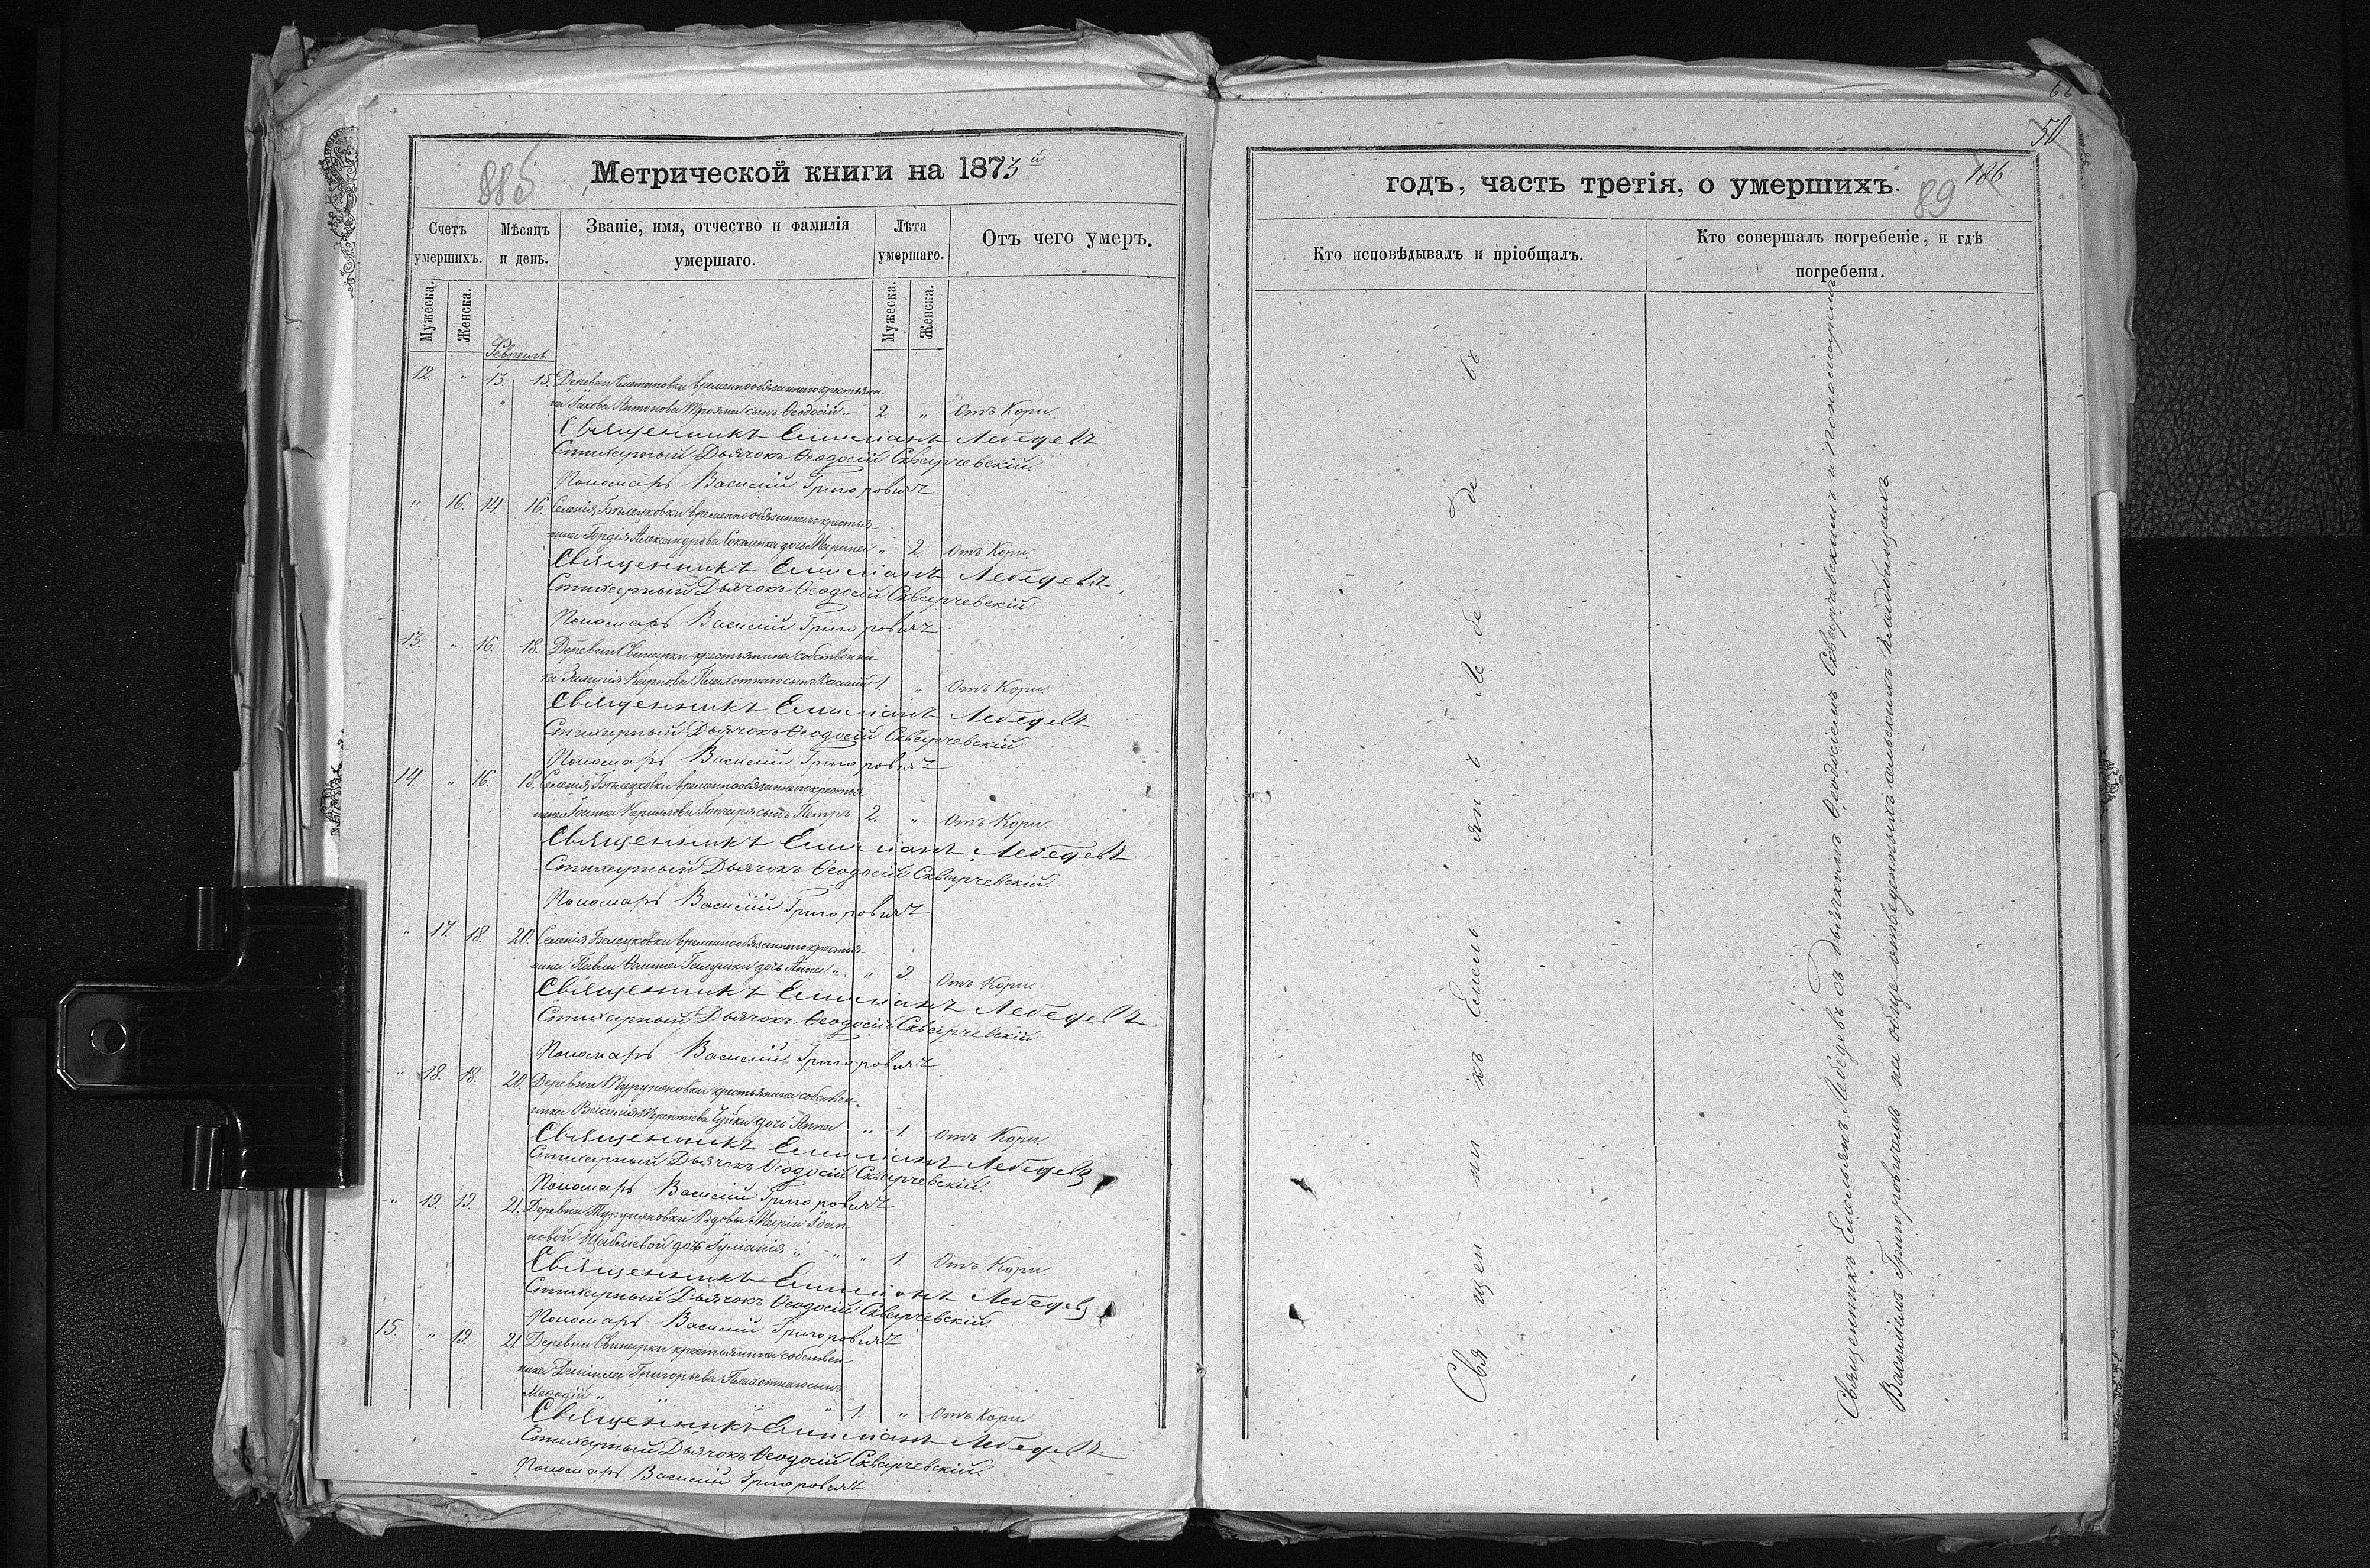 88б
Метрической книги на 1873й
Счетъ умершихъ.
Мѣсяцъ и день.
Званіе, имя, отчество и фамилія умершаго.
Лѣта умершаго.
Отъ чего умеръ.
Мужеска.
Женска.
Мужеска.
Женска.
12. " 13. 15. Деревни временнообязаннаго крестьяни-
на Іакова Антонова Трояна сынъ Ѳеодосій " 2. " Отъ Кори.
Священникъ Емиліанъ Лебедевъ
Стихарный Дьячокъ Ѳеодосій Скварчевскій.
Пономарь Василій Григоровичъ
" 16. 14. 16. Селенія Бѣлецковки временнообязаннаго крестья-
нина Гордія Александрова дочь Марина " 2. Отъ Кори.
Священникъ Емиліанъ Лебедевъ
Стихарный Дьячокъ Ѳеодосій Скварчевскій
Пономарь Василій Григоровичъ
13. " 16. 18. Деревни Свинарки крестьянина собственни-
ка Карпова Плахотнаго сынъ Василій 1. " Отъ Кори.
Священникъ Емиліанъ Лебедевъ
Стихарный Дьячокъ Ѳеодосій Скварчевскій
Пономарь Василій Григоровичъ
14. " 16. 18. Селенія Бѣлецковки временнообязаннаго крестья-
нина Гончаря сынъ Петръ 2. " Отъ Кори.
Священникъ Емиліанъ Лебедевъ
Стихарный Дьячокъ Ѳеодосій Скварчевскій.
Пономарь Василій Григоровичъ
" 17. 18. 20. Селенія Белецковки временнообязаннаго крестья-
нина Павла Ѳомина Галушки дочь Анна " " 2 Отъ Кори.
Священникъ Емиліанъ Лебедевъ
Стихарный Дьячокъ Ѳеодосій Скварчевскій
Пономарь Василій Григоровичъ
" 18. 18. 20. Деревни крестьянина собствен-
ника Василія Терентіева Чуйки дочь Анна " 1. Отъ Кори.
Священникъ Емиліанъ Лебедевъ
Стихарный Дьячокъ Ѳеодосій Скварчевскій.
Пономарь Василій Григоровичъ
" 19. 19. 21. Деревни Вдовы Маріи Іоан-
новой дочь Іуліанія " " " 1. Отъ Кори.
Священникъ Емиліанъ Лебедевъ
Стихарный Дьячокъ Ѳеодосій Скварчевскій.
Пономарь Василій Григоровичъ
15. " 19. 21. Деревни Свинарки крестьянина собствен-
ника Даніила Григорьева Плахотнаго сынъ
Меѳодій " " " 1. " Отъ Кори
Священникъ Емиліанъ Лебедевъ
Стихарный Дьячокъ Ѳеодосій Скварчевскій.
Пономарь Василій Григоровичъ
50
186
89
годъ, часть третія, о умершихъ.
Кто исповѣдывалъ и пріобщалъ.
Кто совершалъ погребеніе, и гдѣ погребены.
Священникъ Емельянъ Лебедевъ съ дьячкомъ Ѳеодосіемъ Скварчевскимъ и пономаремъ
Василіемъ Григоровичемъ на обще отведенныхъ сельскихъ кладбищахъ